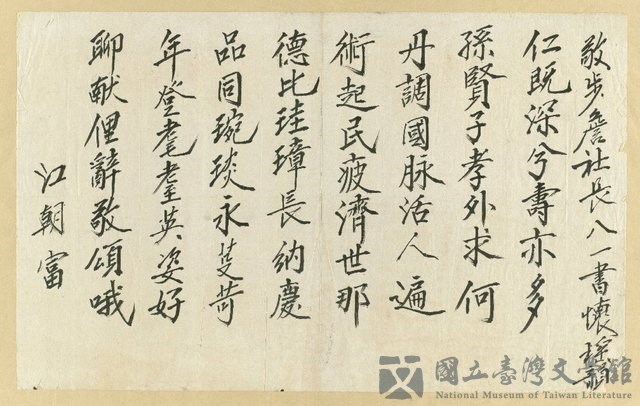 敬步詹社長八一書懷瑤韻
仁既深兮壽亦多
孫賢子孝外求何
丹調國脉活人遍
術起民疲濟世那
德比珪璋長納慶
品同琬琰永芟苛
年登耄耋英姿好
聊献俚辭敬頌哦
江朝富
國立臺灣文學館
National Museum of Taiwan Literature